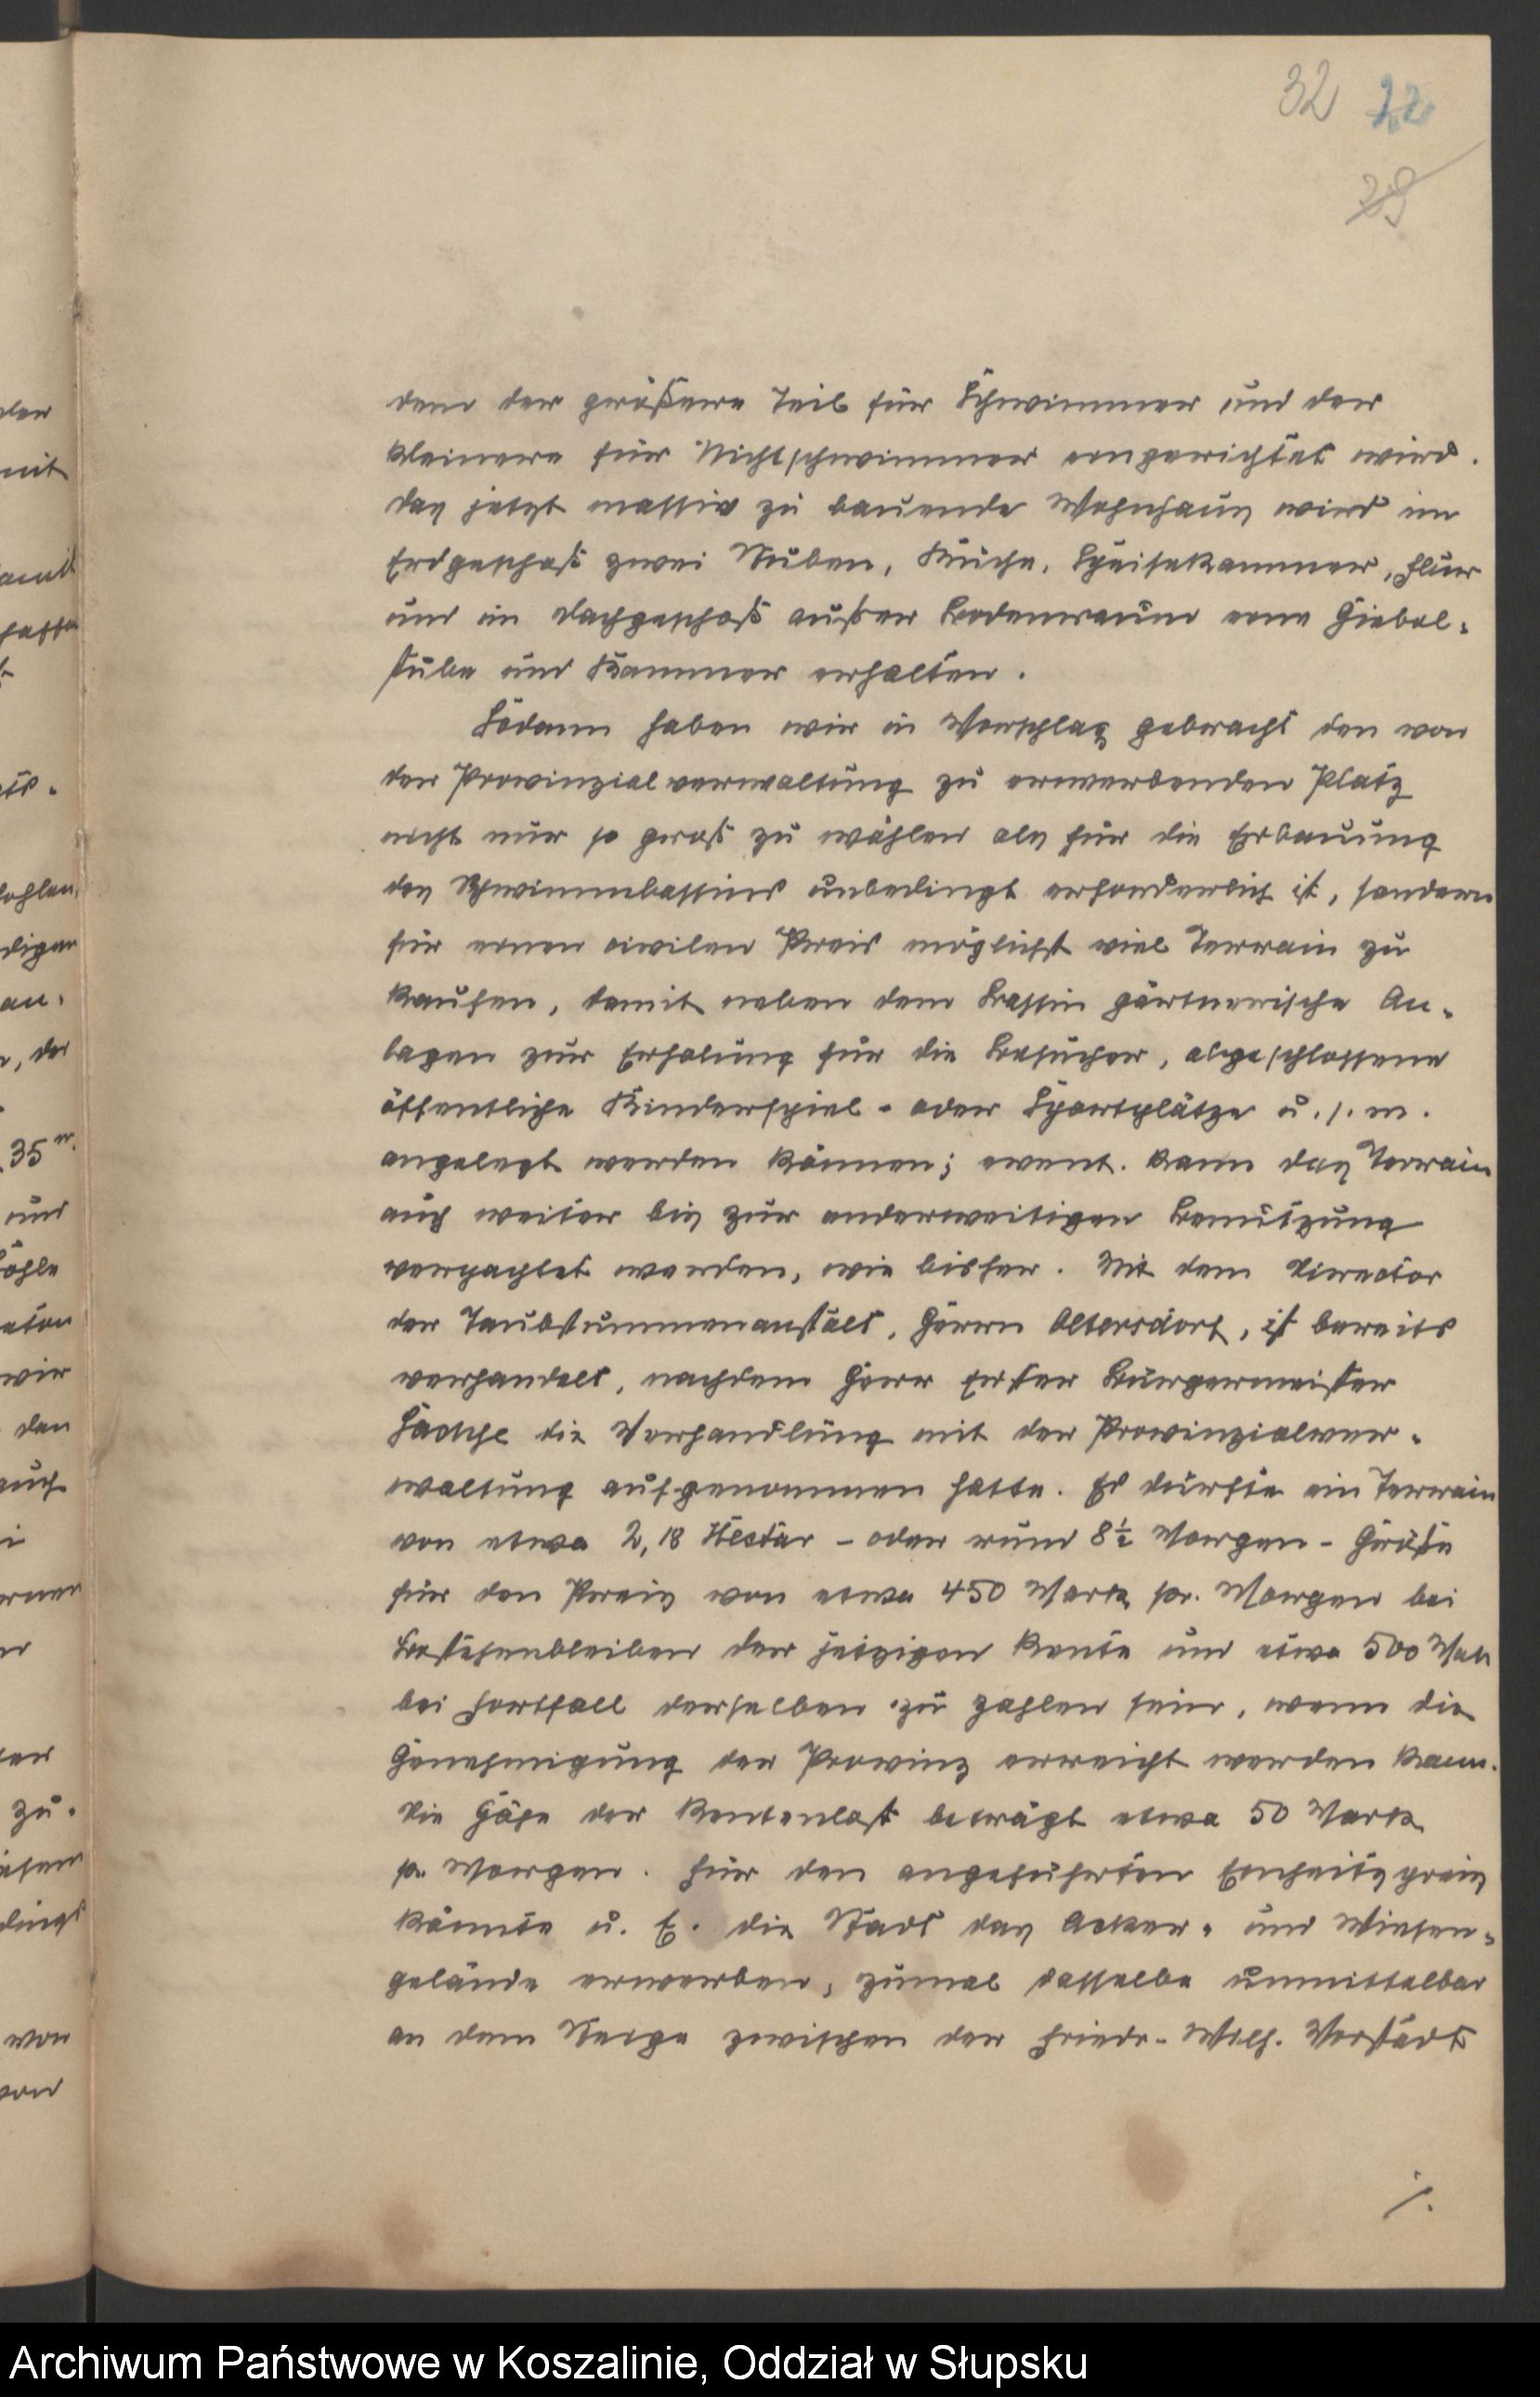 32 22
29
dem der größere Teil für Schwimmer und der
kleinere für Nichtschwimmer eingerichtet wird.
Das jetzt massiv zu bauende Wohnhaus wird im
Erdgeschoß zwei Stuben, Küche, Speisekammer, Flur
und im Dachgeschoß außer Bodenraum eine Giebel-
stube und Kammer erhalten.
Sodann haben wir in Vorschlag gebracht den von
der Provinzialverwaltung zu erwerbenden Platz
nicht nur so groß zu wählen als für die Erbauung
des Schwimmbassins unbedingt erforderlich ist, sondern
für einen civilen Preis möglichst viel Terrain zu
kaufen, damit neben dem Bassin gärtnerische An-
lagen zur Erholung für die Besucher, abgeschlossene
öffentliche Kinderspiel- oder Sportplätze u. s. w.
angelegt werden können; event. kann das Terrain
auch weiter bis zur anderweitigen Benutzung
verpachtet werden, wie bisher. Mit dem Director
der Taubstummenanstalt, Herrn Oltersdorf, ist bereits
verhandelt, nachdem Herr Erster Bürgermeister
die Verhandlung mit der Provinzialver-
waltung aufgenommen hatte. Es dürfte ein Terrain
von etwa 2,18 Hectar - oder rund 8½ Morgen - Größe
für den Preis von etwa 450 Mark pr. Morgen bei
Bestehenbleiben der jetzigen Rente und etwa 500 Mark
bei Fortfall derselben zu zahlen sein, wenn die
Genehmigung der Provinz erreicht werden kann.
Die Höhe der Rentenlast beträgt etwa 50 Mark
pr. Morgen. Für den angeführten Einheitspreis
könnte u. E. die Stadt das Acker- und Wiesen-
gelände erwerben, zumal dasselbe unmittelbar
an dem Wege zwischen der Friedr.-Wilh. Vorstadt
./.
Archiwum Państwowe w Koszalinie, Oddział w Słupsku